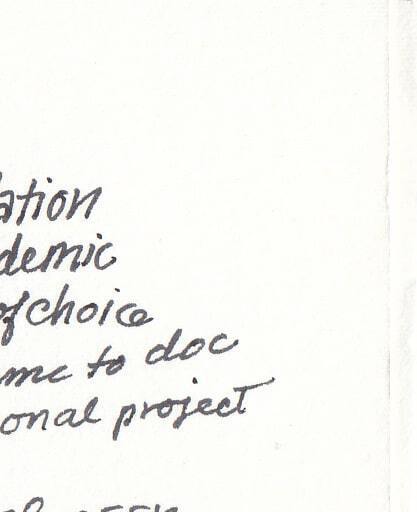 ation
demic
of choice
me to doc
onal project